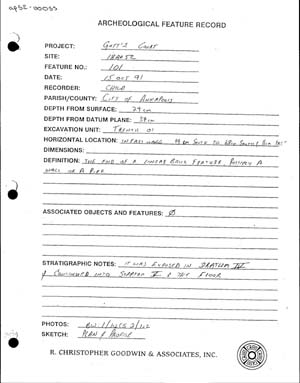 ap52-00033
ARCHEOLOGICAL FEATURE RECORD
PROJECT: Gott's Court
SITE: 18AP52
FEATURE NO.: 101
DATE: 15 Oct 91
RECORDER: Child
PARISH/COUNTY: City of Annapolis
DEPTH FROM SURFACE: 29 cm
DEPTH FROM DATUM PLANE: cm
EXCAVATION UNIT: Trench 01
HORIZONTAL LOCATION: IN EAST WALL
DIMENSIONS:
DEFINITION: THE END OF A LINEAR BRICK FEATURE, POSSIBLY A
WALL OR A PIER
ASSOCIATED OBJECTS AND FEATURES: Ø
STRATIGRAPHIC NOTES: IT WAS EXPOSED IN STRATUM IV
& CONTINUED INTO STRATUM V & THE FLOOR
PHOTOS: BW:1/
SKETCH: PLAN & PROFILE
R. CHRISTOPHER GOODWIN & ASSOCIATES, INC.